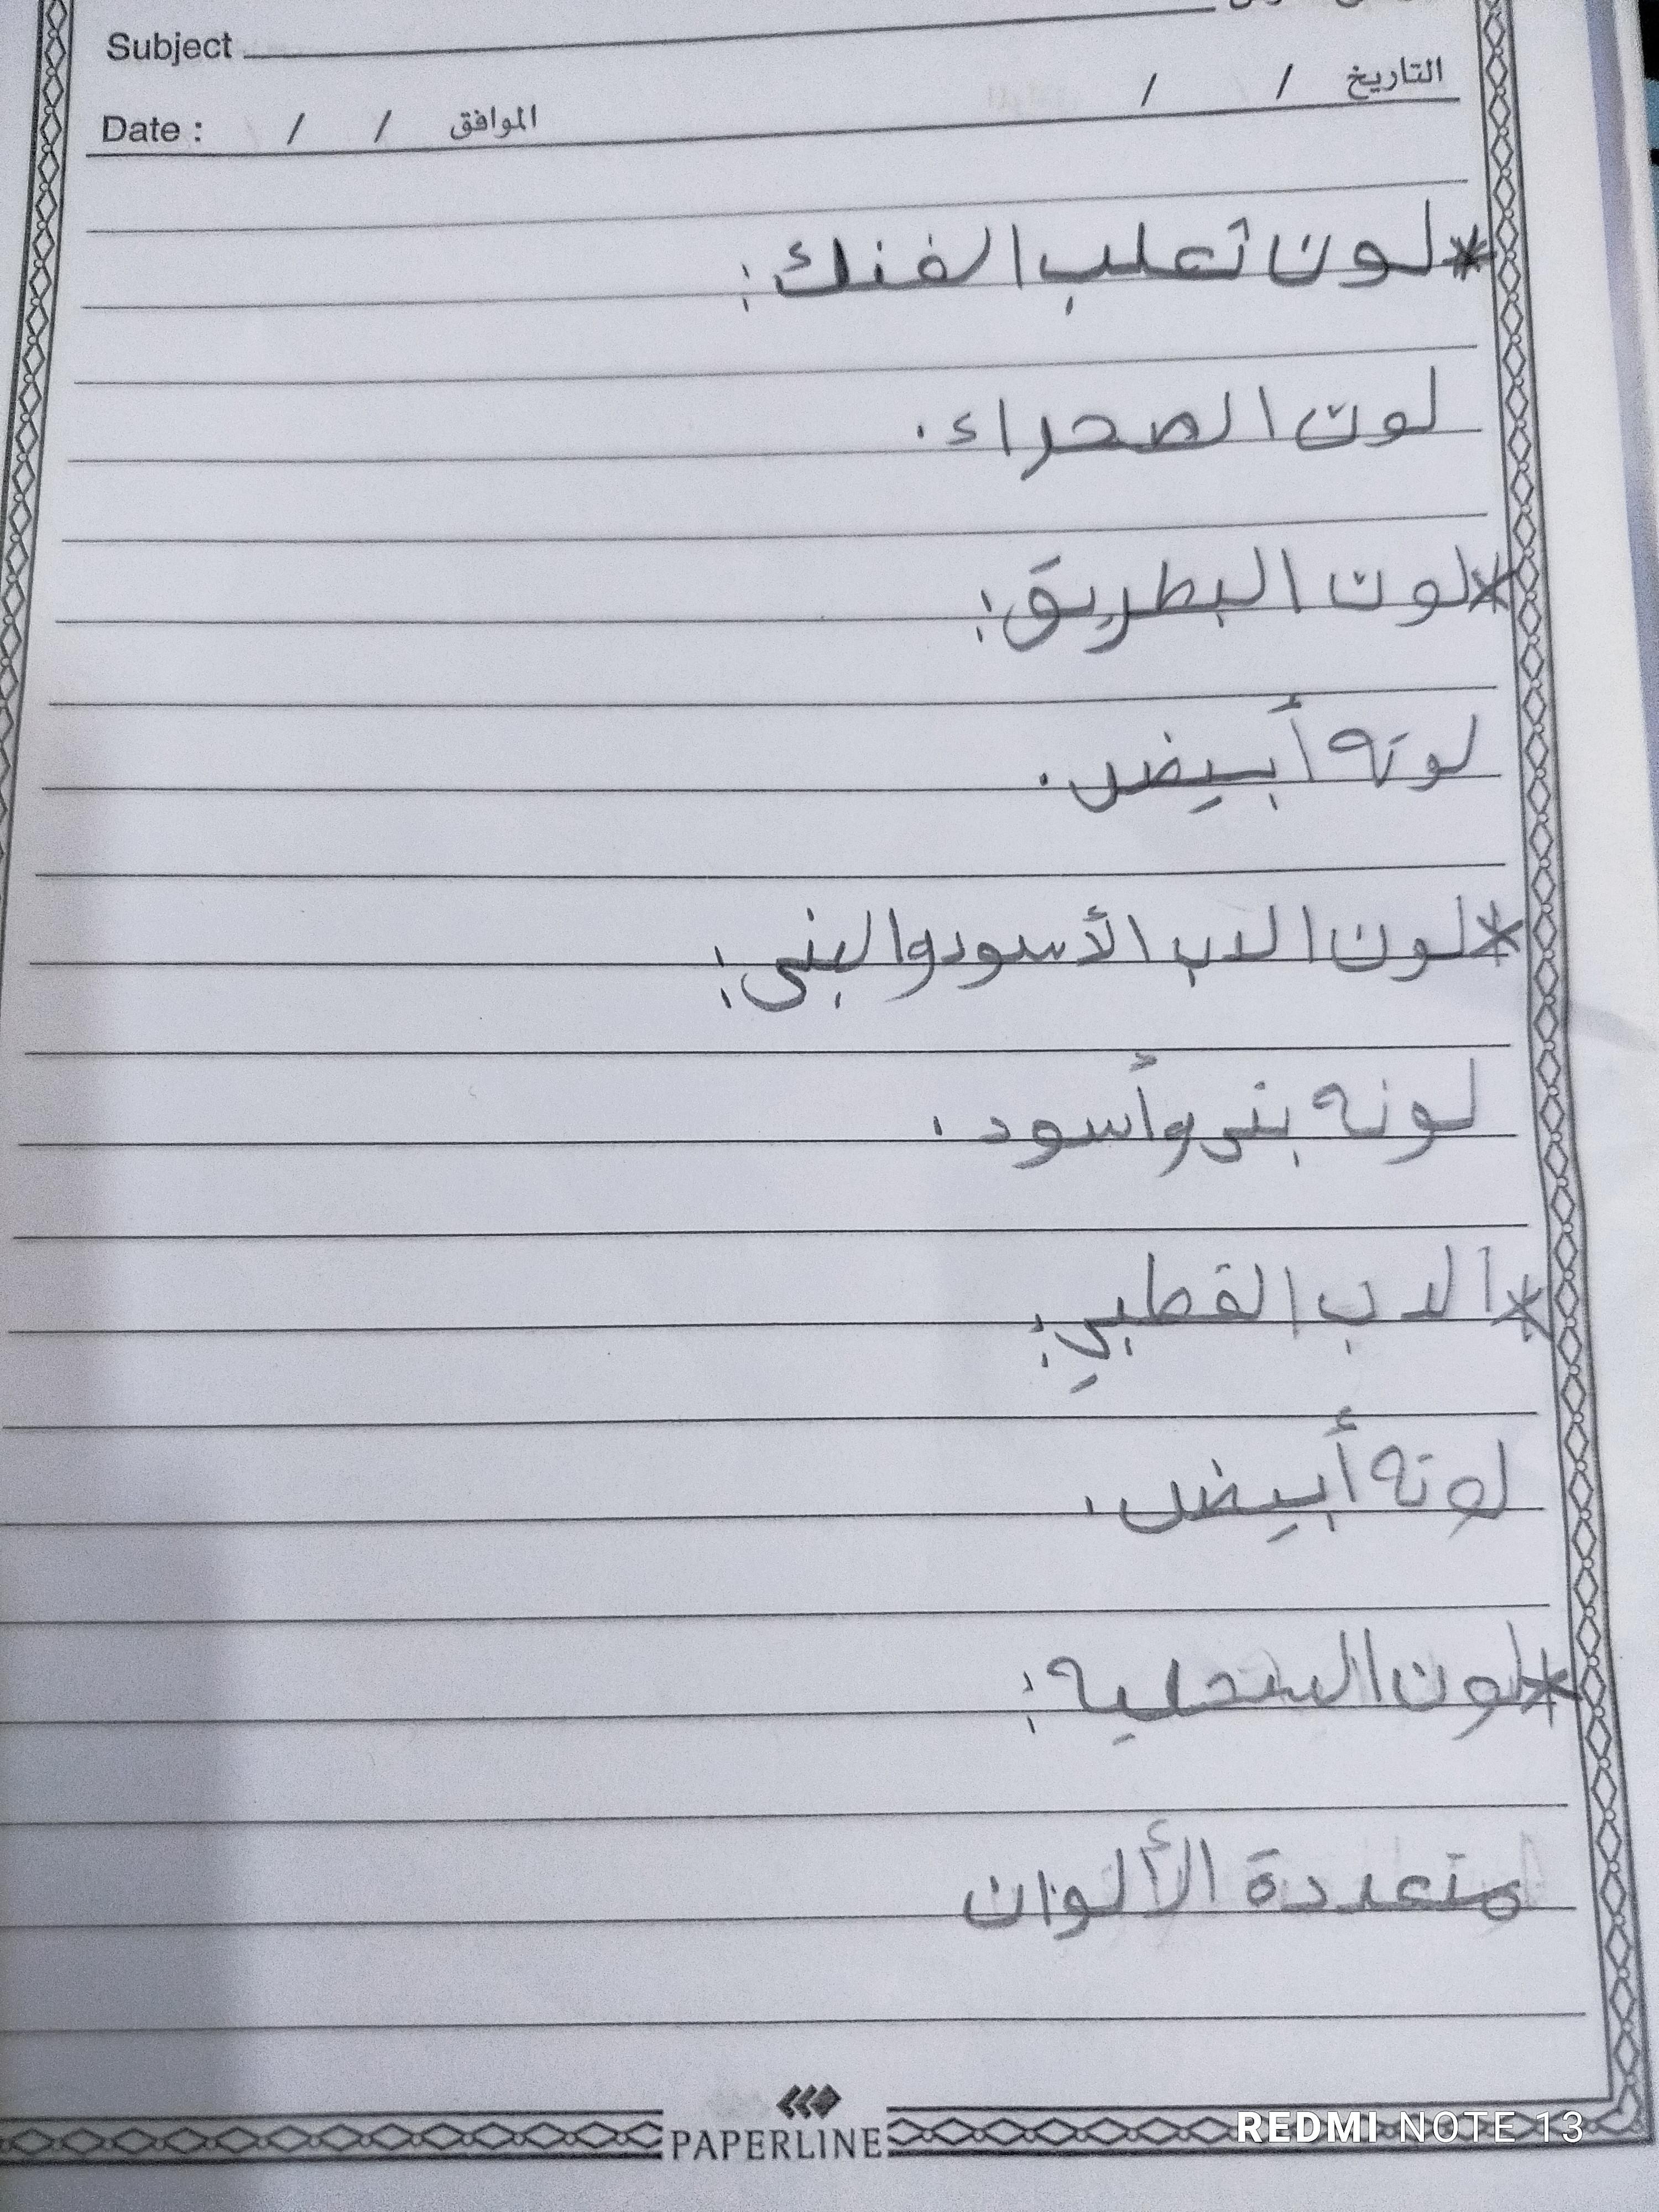 Subject
التاريخ / /
Date : / / الموافق
*لون ثعلب الفنك:
لون الصحراء.
*لون البطريق:
لونه أبيض.
*لون الدب الأسود والبني:
لونه بني وأسود.
*الدب القطبي:
لونه أبيض.
*لون السحلية:
متعددة الألوان
PAPERLINE
REDMI NOTE 13